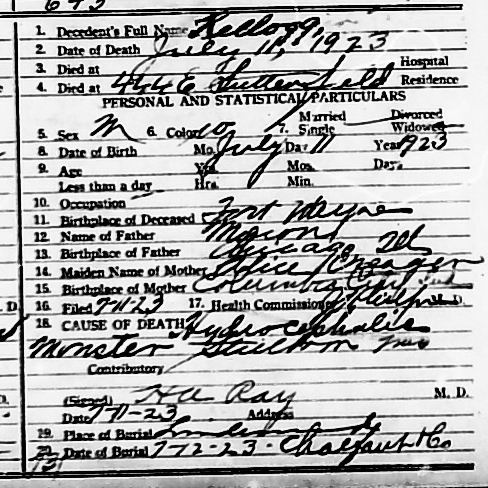 1. Decedent's Full Name Kellogg,
2. Date of Death July 11, 1923
3. Died at Hospital
4. Died at 444 E Residence
PERSONAL AND STATISTICAL PARTICULARS
Married Divorced
5. Sex M 6. Color W 7. Single Widowed
8. Date of Birth Mo. July Day 11 Year 1923
9. Age Yrs. Mos. Days.
Less than a day Hrs. Min.
10. Occupation
11. Birthplace of Deceased Fort Wayne
12. Name of Father Marion
13. Birthplace of Father Chicago Ill
14. Maiden Name of Mother Alice
15. Birthplace of Mother Columbia City Ind
16. Filed 7-11-23 17. Health Commissioner M.D.
18. CAUSE OF DEATH Hydrocephalic
Monster Stillborn
Contributory
(Signed) HA Ray M. D.
Date 7-11-23 Address
19. Place of Burial Lindenwood
20. Date of Burial 7-12-23 - Chalfant & Co